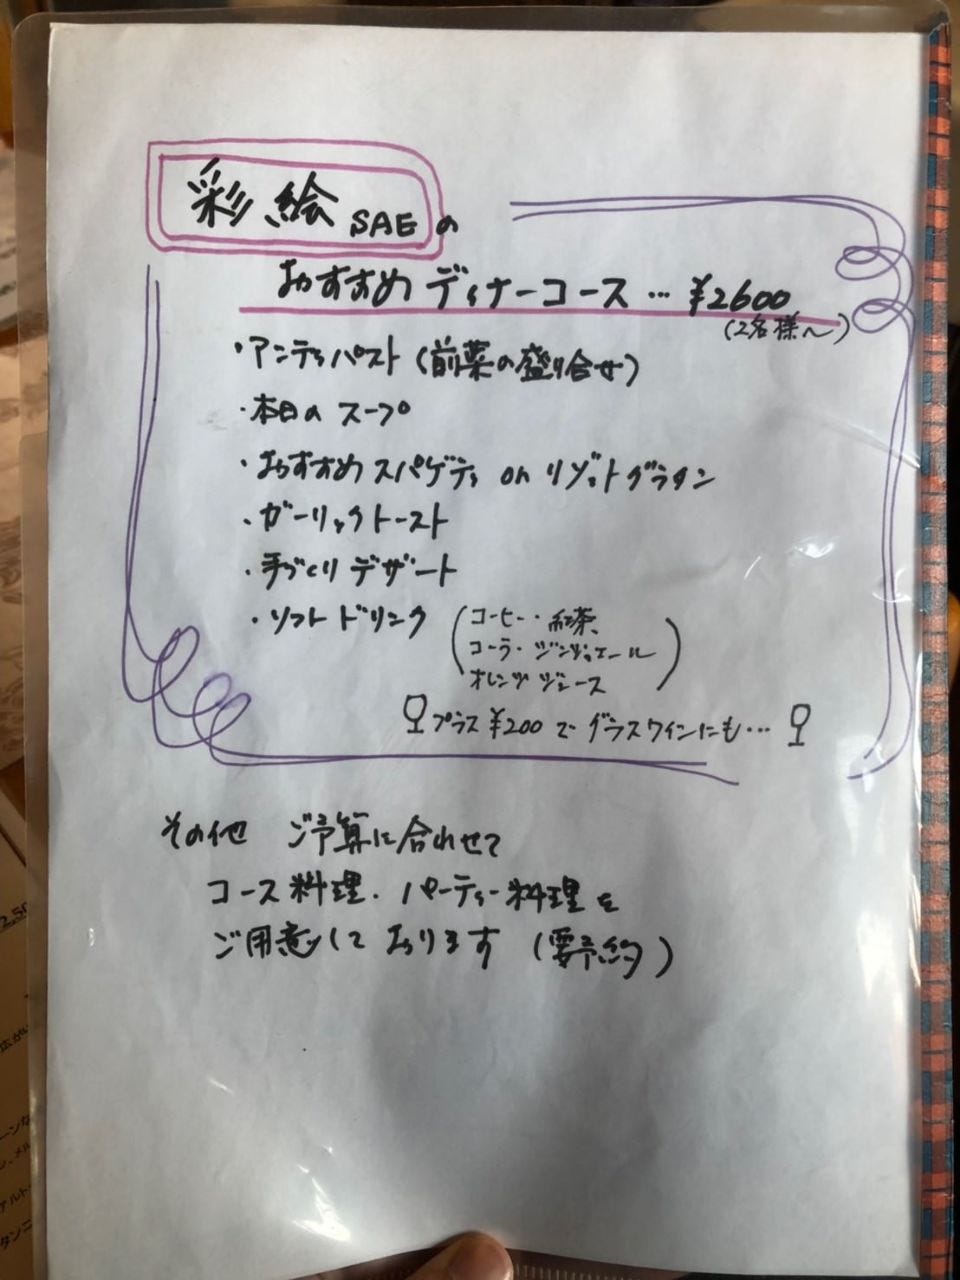 彩絵 SAE の
おすすめ ディナーコース … ¥2600
(2名様〜)
・アンティパスト (前菜の盛り合せ)
・本日の スープ
・おすすめ スパゲティ or リゾットグラタン
・ガーリックトースト
・手づくり デザート
・ソフト ドリンク (コーヒー・紅茶
コーラ・ジンジャエール
オレンジジュース)
プラス ¥200 で グラスワインにも…
その他 ご予算に合わせて
コース料理・パーティー料理を
ご用意して おります (要予約)